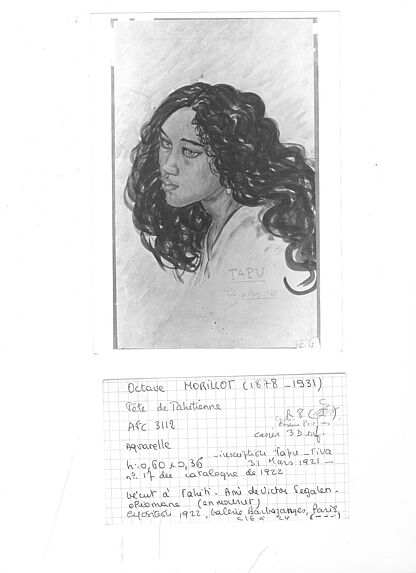 TAPU
Octave MORILLOT (1878-1931)
Tête de Tahitienne
AFC 3112
casier 3D inf.
Aquarelle
h: 0,60 x 0,36 - inscription Tapu - Tiva
31 Mars 1921 -
n° 17 du catalogue de 1922
vécut à Tahiti. Ami de Victor Segalen.
(en mourut)
Exposition 1922, Galerie Barbazanges, Paris